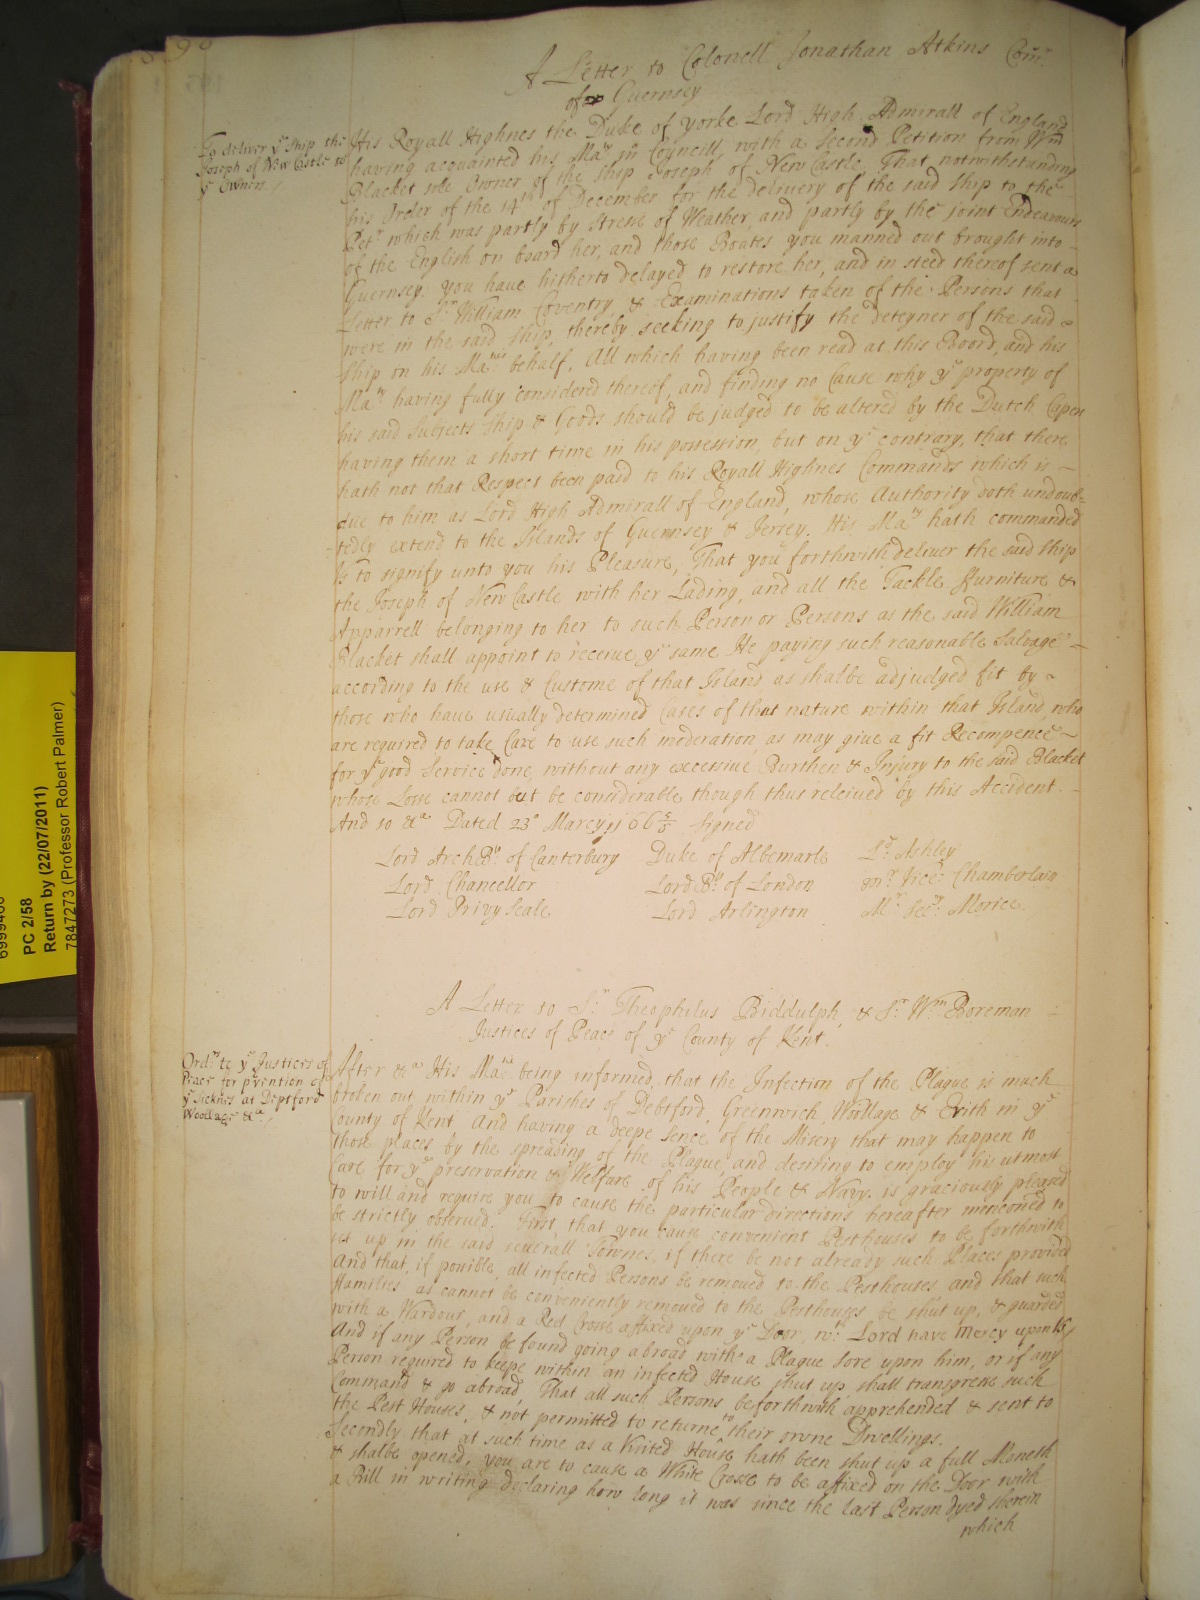 390
A Letter to Colonell Jonathan Atkins Com:r
of Guernsey
To deliver ye Ship the
Joseph of New Castle to
ye Owners /
His Royall Highnes the Duke of yorke Lord High Admirall of England
having acquainted his Maty in Councill, with a Second Petition from Wm
Blacket sole Owner of the Ship Joseph of New Castle, That notwithstanding
his Order of the 14th of December for the delivery of the said Ship to the
Petr which was partly by Stresse of Weather, and partly by the joint Endeavours
of the English on board her, and those Boates you manned out brought into
Guernsey. you have hitherto delayed to restore her, and in steed thereof sent a
Letter to Sr William Coventry, & Examinations taken of the Persons that
were in the said Ship, thereby seeking to justify the deteyner of the said
Ship on his Maties behalf, All which having been read at this Boord, and his
Maty having fully considered thereof, and finding no Cause why ye property of
his said Subjects Ship & Goods should be judged to be altered by the Dutch Capers
having them a short time in his possession, but on ye contrary, that there
hath not that Respect been paid to his Royall Highnes Commands which is
due to him as Lord High Admirall of England, whose Authority doth undoub=
=tedly extend to the Islands of Guernsey & Jersey. His Maty hath commanded
Us to signify unto you his Pleasure, That you forthwith deliver the said Ship
the Joseph of New Castle with her Lading, and all the Tackle ffurniture &
Apparrell belonging to her to such Person or Persons as the said William
Blacket shall appoint to receive ye same He paying such reasonable Salvage
according to the use & Custome of that Island as shalbe adjudged fit by
those who have usually determined Cases of that nature within that Island, who
are required to take Care to use such moderation as may give a fit Recompence
for ye good Service done, without any excessive Burthen & Injury to the said Blacket
whose Losse cannot but be considerable though thus releived by this Accident.
And so &a Dated 23o March 166 5/6 Signed
Lord ArchBp of Canterbury Duke of Albemarle Ld Ashley
Lord Chancellor Lord Bp of London Mr Vice: Chamberlain
Lord Privy Seale Lord Arlington Mr Secy: Morice
A Letter to Sr Theophilus Biddulph, & Sr Wm Boreman
Justices of Peace of ye County of Kent.
Ordr to ye Justices of
Peace for pvention of
ye Sicknes at Deptford
Woolage &a /
After &a His Matie being informed, that the Infection of the Plague is much
broken out within ye Parishes of Debtford, Greenwich, Woollage & Erith in ye
County of Kent And having a deepe sence of the Misery that may happen to
those places by the spreading of the Plague, and desiring to employ his utmost
Care for ye preservation & Welfare of his People & Navy. is graciously pleased
to will and require you to cause the particular directions hereafter menconed to
be strictly observed. First, that you cause convenient Pesthouses to be forthwith
set up in the said severall Townes, if there be not already such Places provided
And that, if possible, all infected Persons be removed to the Pesthouses and that such
ffamilies as cannot be conveniently removed to the Pesthouses be shut up, & guarded
with a Wardour, and a Red Crosse affixed upon ye Door, wth Lord have Mercy upon Us,
And if any Person be found going abroad with a Plague Sore upon him, or if any
Person required to keepe within an infected House shut up, shall transgresse such
Command & go abroad, That all such Persons be forthwith apprehended & sent to
the Pest Houses, & not permitted to returne to their owne Dwellings.
Secondly that at such time as a Visited House hath been shut up a full Moneth
& shalbe opened, you are to cause a White Crosse to be affixed on the Door with
a Bill in writing declaring how long it was since the last Person dyed therein
which
PC 2/58
Return by (22/07/2011)
7847273 (Professor Robert Palmer)